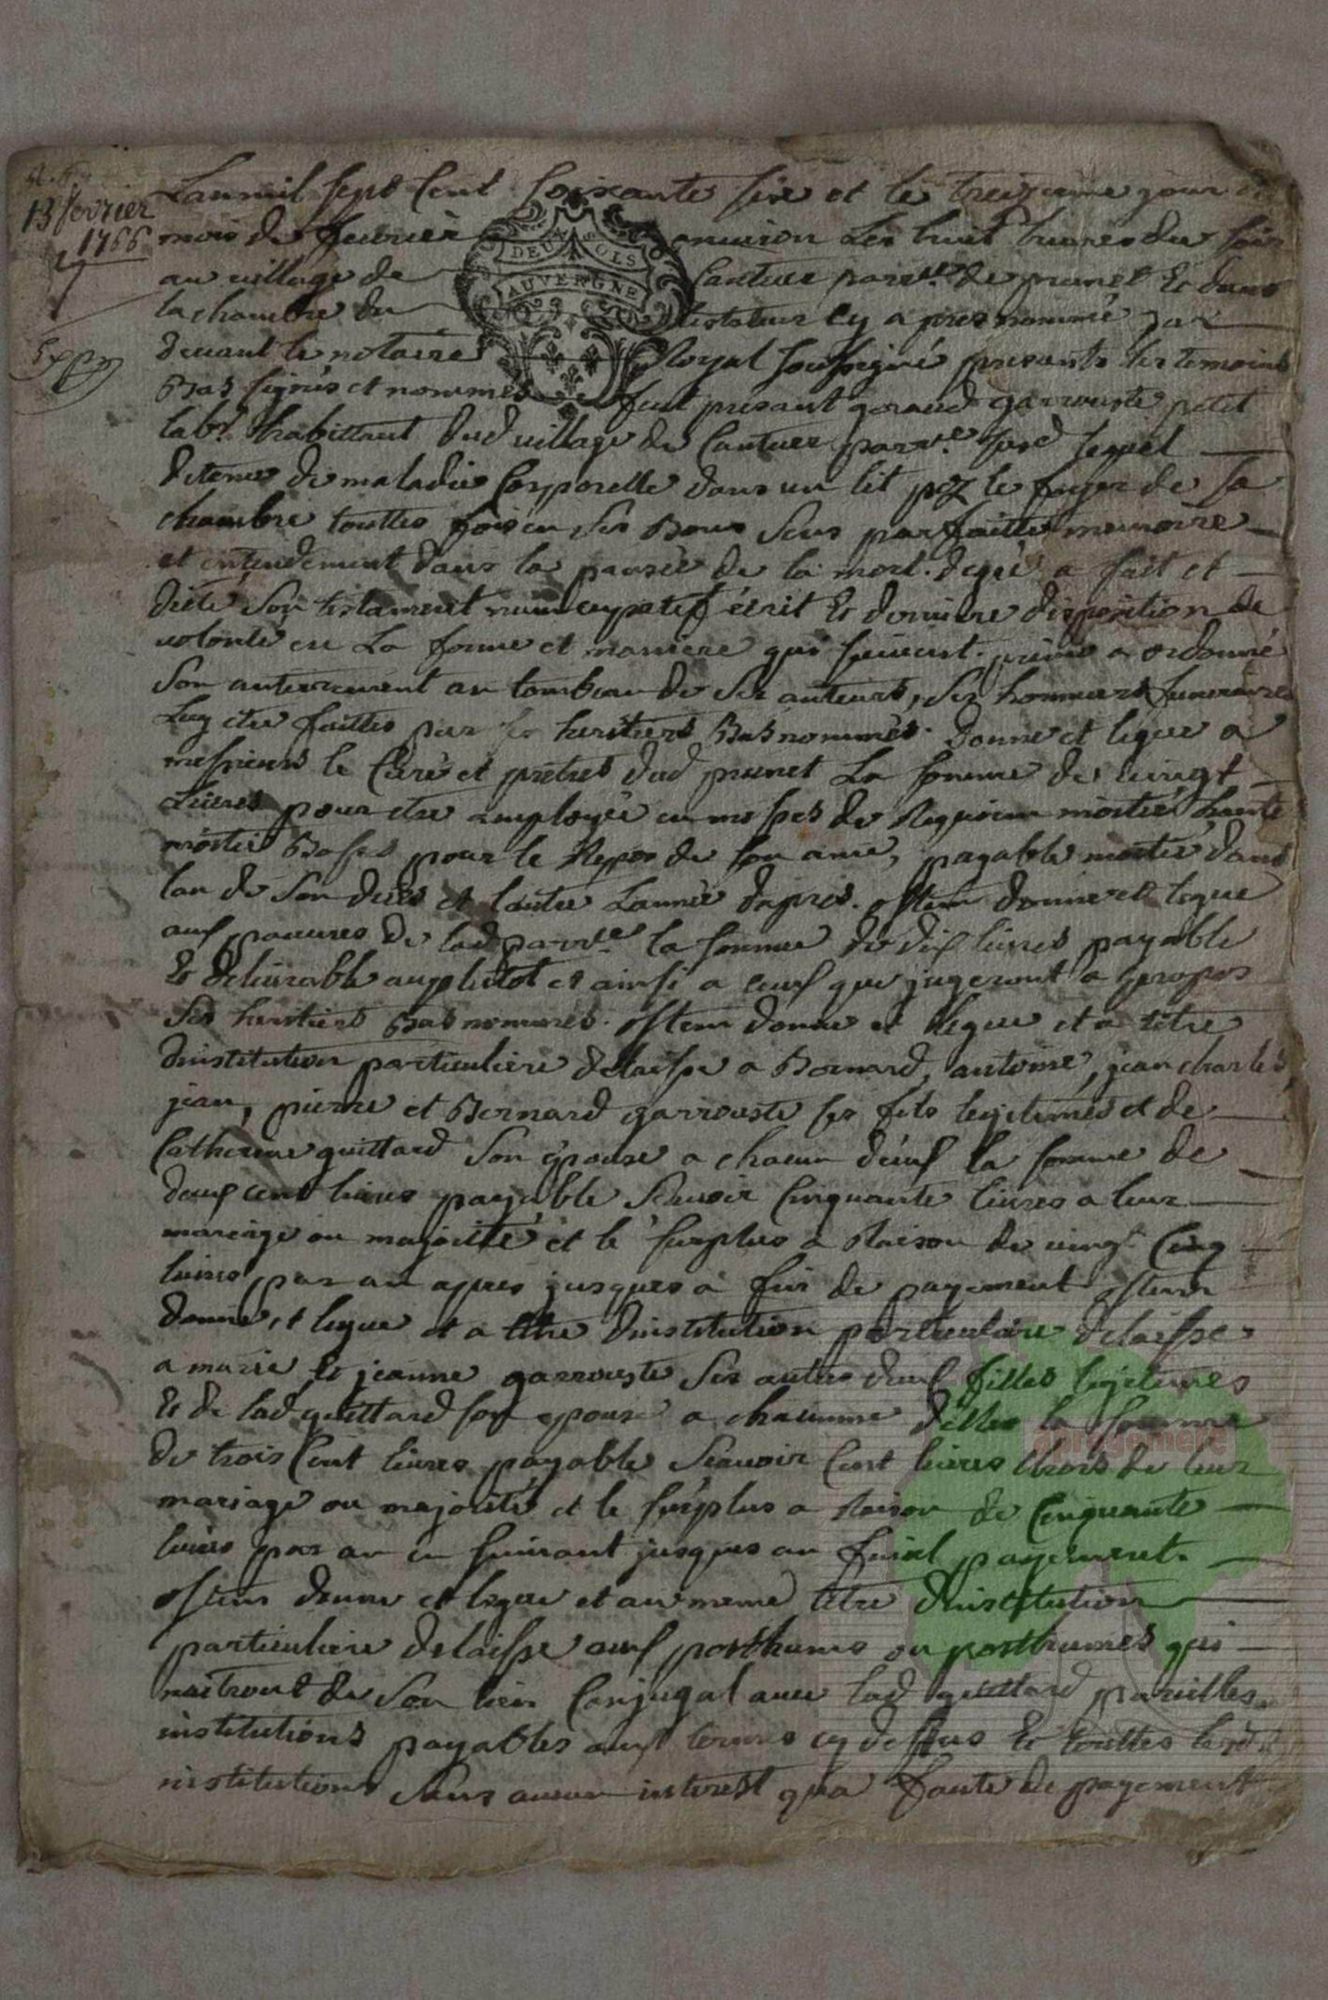 13 fevrier
1766
Lan mil sept Cent soixante six et le treizieme jour de
mois de feuvrier environ Les huit heures du soir
DEUX SOLS
AUVERGNE
au village de Cantuer parr.e de prunet Et dans
la chambre du testateur Cy apres nommé par
devant le notaire Royal soussigné presants les temoins
Bas signés et nommés fut presant geraud garrouste petit
lab.r habittant dud village de Cantuer parr.e susd lequel
detenu de maladie Corporelle dans un lit prez le foyer de sa
chambre touttes fois en ses Bons sens parfaitte memoire
et entendement dans la pansée de la mort. de gré a fait et
dicté son testament nuncupatif écrit Et derniere disposition de
volonté en La forme et maniere qui suivent. primo a ordonné
son anterrement au tombeau de ses auteurs, ses honneurs funeraires
Luy etre faittes par ses heritiers Bas nommés. Donne et legue a
messieurs le Curé et prêtres dud prunet La somme de vingt
Livres pour etre employée en messes de Requiem moitié haute
moitié Basses pour le Repos de son ame, payable moitié dans
lan de son deces et lautre Lannée dapres. ostem donne et legue
aux pauvres de lad parr.e la somme de dix livres payable
Et delivrable au plutot et ainsi a ceux que jugeront a propos
ses heritiers Bas nommés. ostem donne et legue et a titre
dinstitution particuliere delaisse a Bernard, antoine, jean charles,
jean, pierre et Bernard garrouste ses fils legitimes et de
Catherine guittard son epouse a chacun deux la somme de
deux cent livres payable scavoir Cinquante livres a leur
mariage ou majorité et le surplus a Raison de vingt Cinq
livres par an apres jusques a fin de payement ostem
donne et legue et a titre dinstitution particuliere delaisse
a marie Et jeanne garrouste ses autres deux filles legitimes
Et de lad guittard son epouse a chacunne delles la somme
de trois Cent livres payable scavoir Cent livres lhors de leur
mariage ou majorité et le surplus a Raison de Cinquante
livres par an en suivant jusques au final payement.
ostem donne et legue et au meme titre dinstitution
particuliere delaisse aux posthums ou posthumes qui
naitront de son lien Conjugal avec lad guittard pareilles
institutions payables aux termes cy dessus Et touttes lesd.
institutions sans aucun interest qua faute de payement